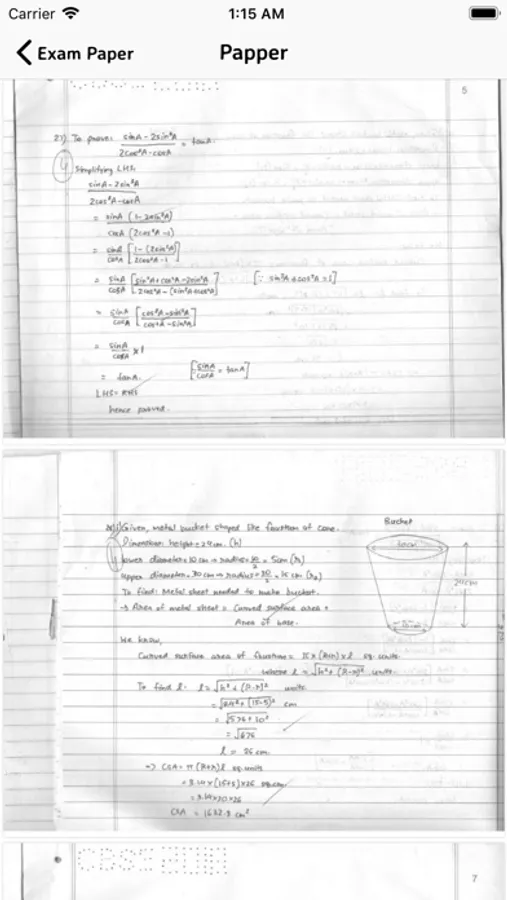 Carrier 1:15 AM
Exam Paper Papper
5
To prove: sinA - 2sin³A / 2cos³A - cosA = tanA.
4
Simplifying LHS
sinA - 2sin³A / 2cos³A - cosA
= sinA (1 - 2sin²A) / cosA (2cos²A - 1)
= sinA / cosA [1 - (2sin²A) / 2cos²A - 1]
= sinA / cosA [sin²A + cos²A - 2sin²A / 2cos²A - (sin²A + cos²A)] [∵ sin²A + cos²A = 1]
= sinA / cosA [cos²A - sin²A / cos²A - sin²A]
= sinA / cosA × 1
= tanA. [sinA / cosA = tanA]
LHS = RHS
hence proved.
Given, metal bucket shaped like frustum of cone.
Bucket
Dimensions: height = 24 cm. (h)
lower diameter = 10 cm → radius = 10/2 = 5cm (r)
upper diameter = 30 cm → radius = 30/2 = 15 cm (R)
30cm
24cm
To find: Metal sheet needed to make bucket.
→ Area of metal sheet = Curved surface area +
Area of base.
We know,
Curved surface area of frustum = π × (R+r) × l sq. units.
where l = √h² + (R-r)² units.
To find l: l = √h² + (R-r)² units
= √24² + (15-5)² cm
= √576 + 10²
= √676
l = 26 cm.
=> CSA = π (R+r) l sq. units
= 3.14 × (15+5) × 26 sq. cm.
= 3.14 × 20 × 26
CSA = 1632.8 cm²
CBSE
7